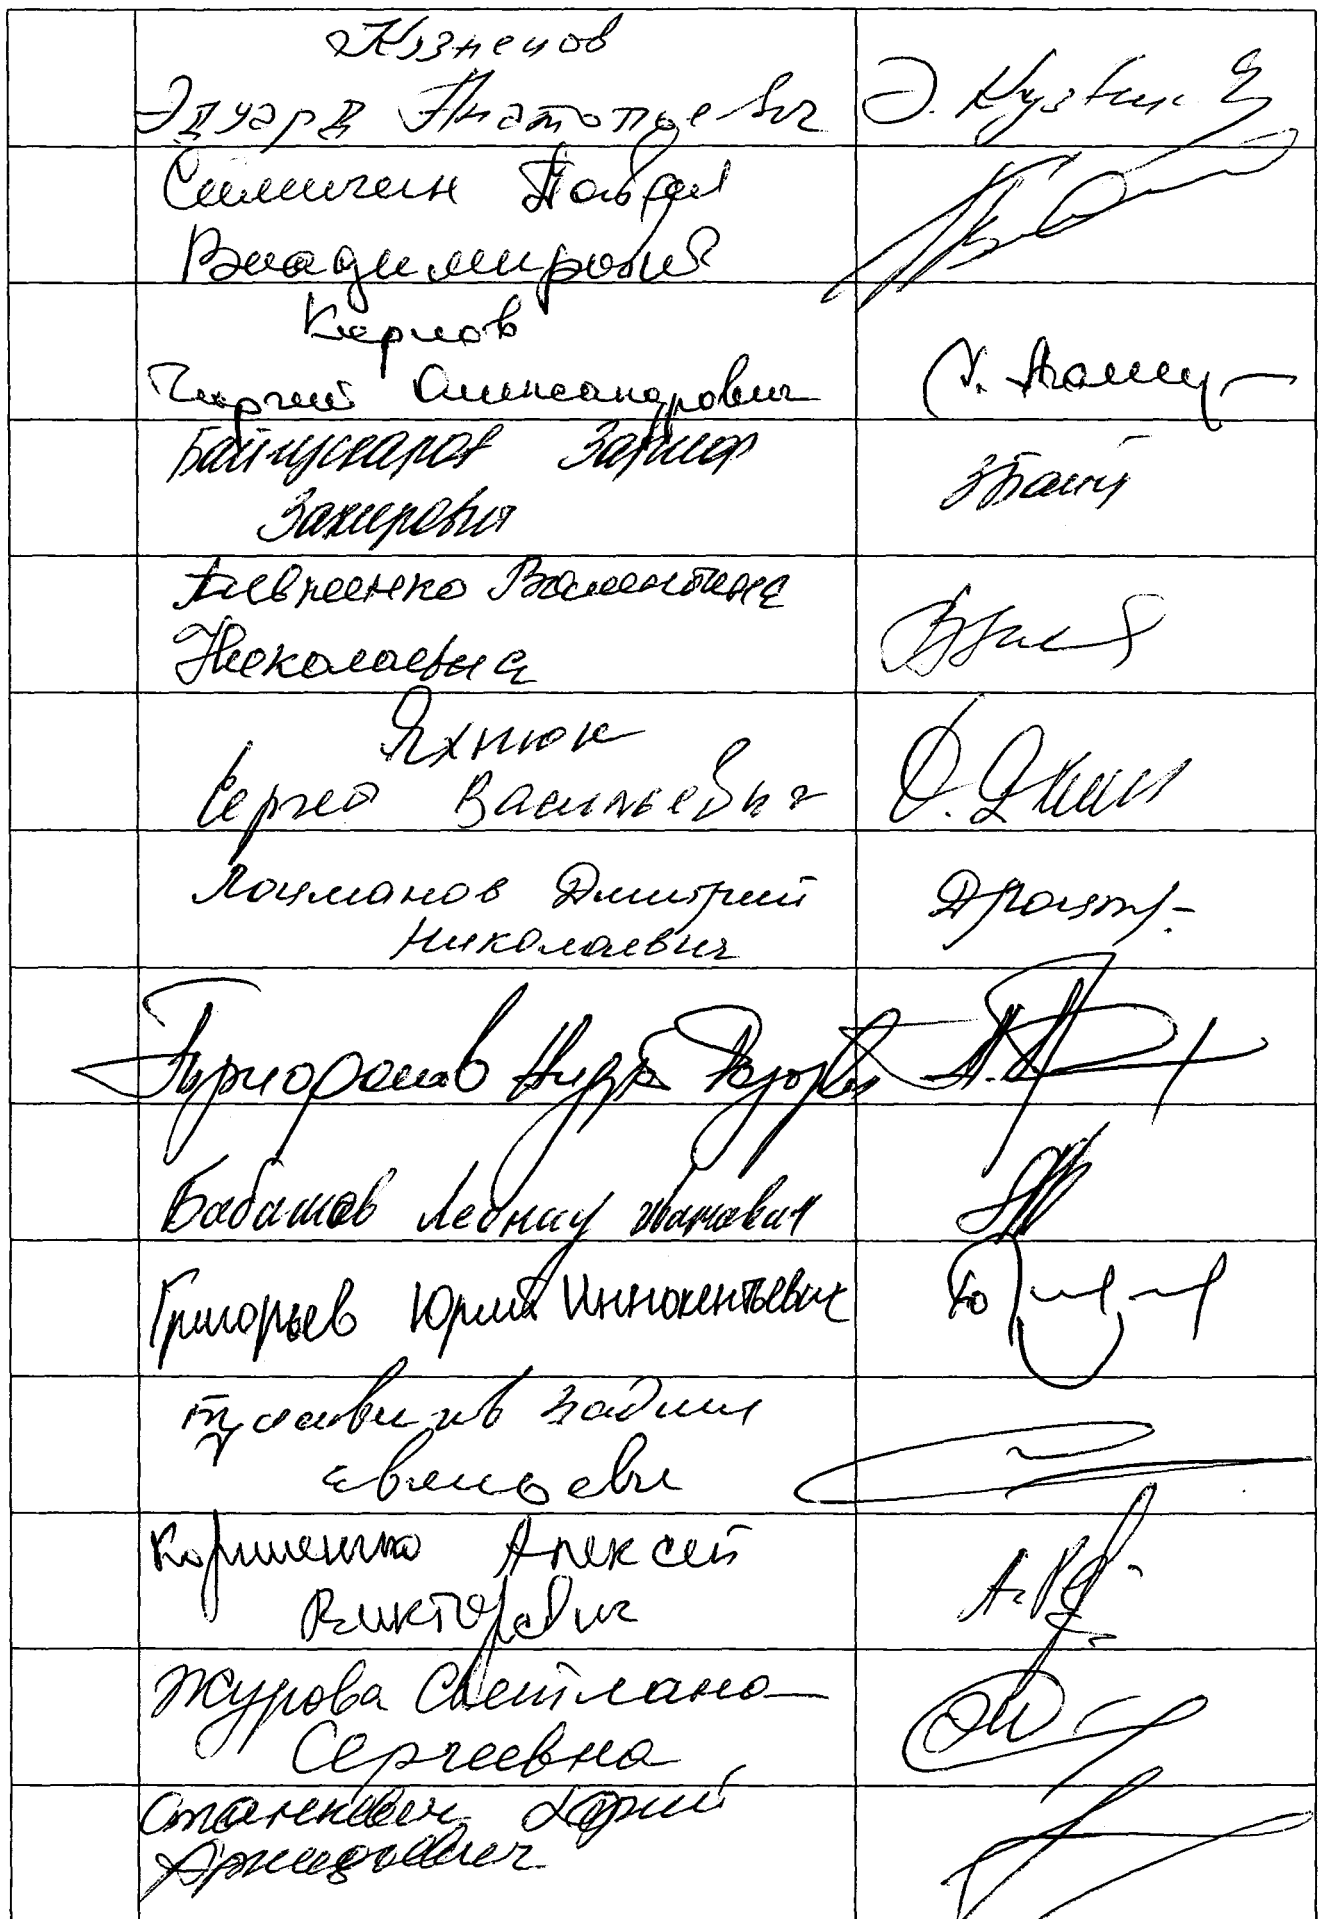 Кузнецов
Эдуард Анатольевич Э. Кузнец
Симигин Павел
Владимирович
Карлов
Георгий Александрович
Байгускаров Зариф
Закирович ЗБайг
Пивненко Валентина
Николаевна
Яхнюк
Сергей Васильевич
Лоцманов Дмитрий
Николаевич
Айдар
Бабашов Леонид Иванович
Григорьев Юрий Иннокентьевич
Вадим
Евгеньевич
Корниенко Алексей
Викторович
Журова Светлана
Сергеевна
Станкевич Юрий
Аркадьевич